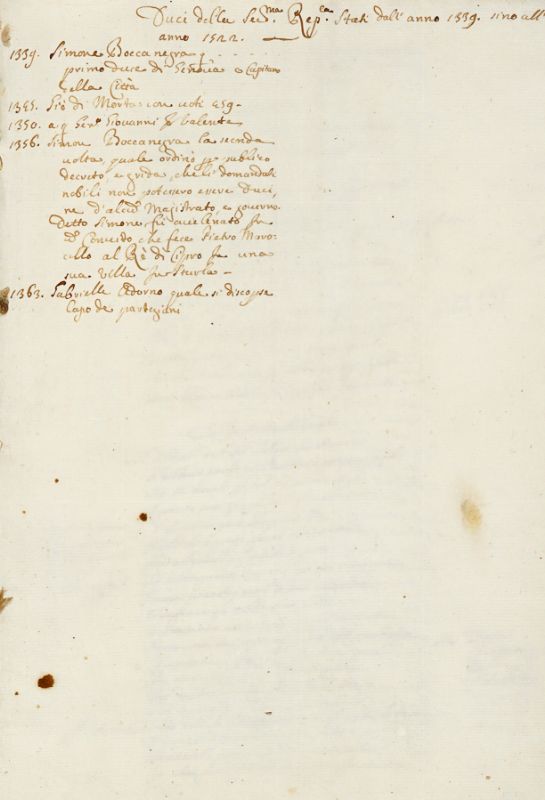 Duci della Ser.ma Rep.ca Stati dall' anno 1339. sino all'
anno 1522.
1339. Simone Boccanegra
primo duce di Genova e Capitano
della Città
1345. Gio di Morta con voti
1350. a 9 Giovanni Valente
1356. Simone Boccanegra la seconda
volta, quale ordinò p. publico
decreto, e grida, che li domandati
nobili non potessero essere Duci,
ne d'alcū Magistrato, e governo
Detto Simone fù avvelenato in
Convito, che fece Pietro Maro-
cello al Rè di Cipro in una
sua Villa in Sturla -
1363. Gabrielle Adorno quale si discoperse
Capo de partegiani